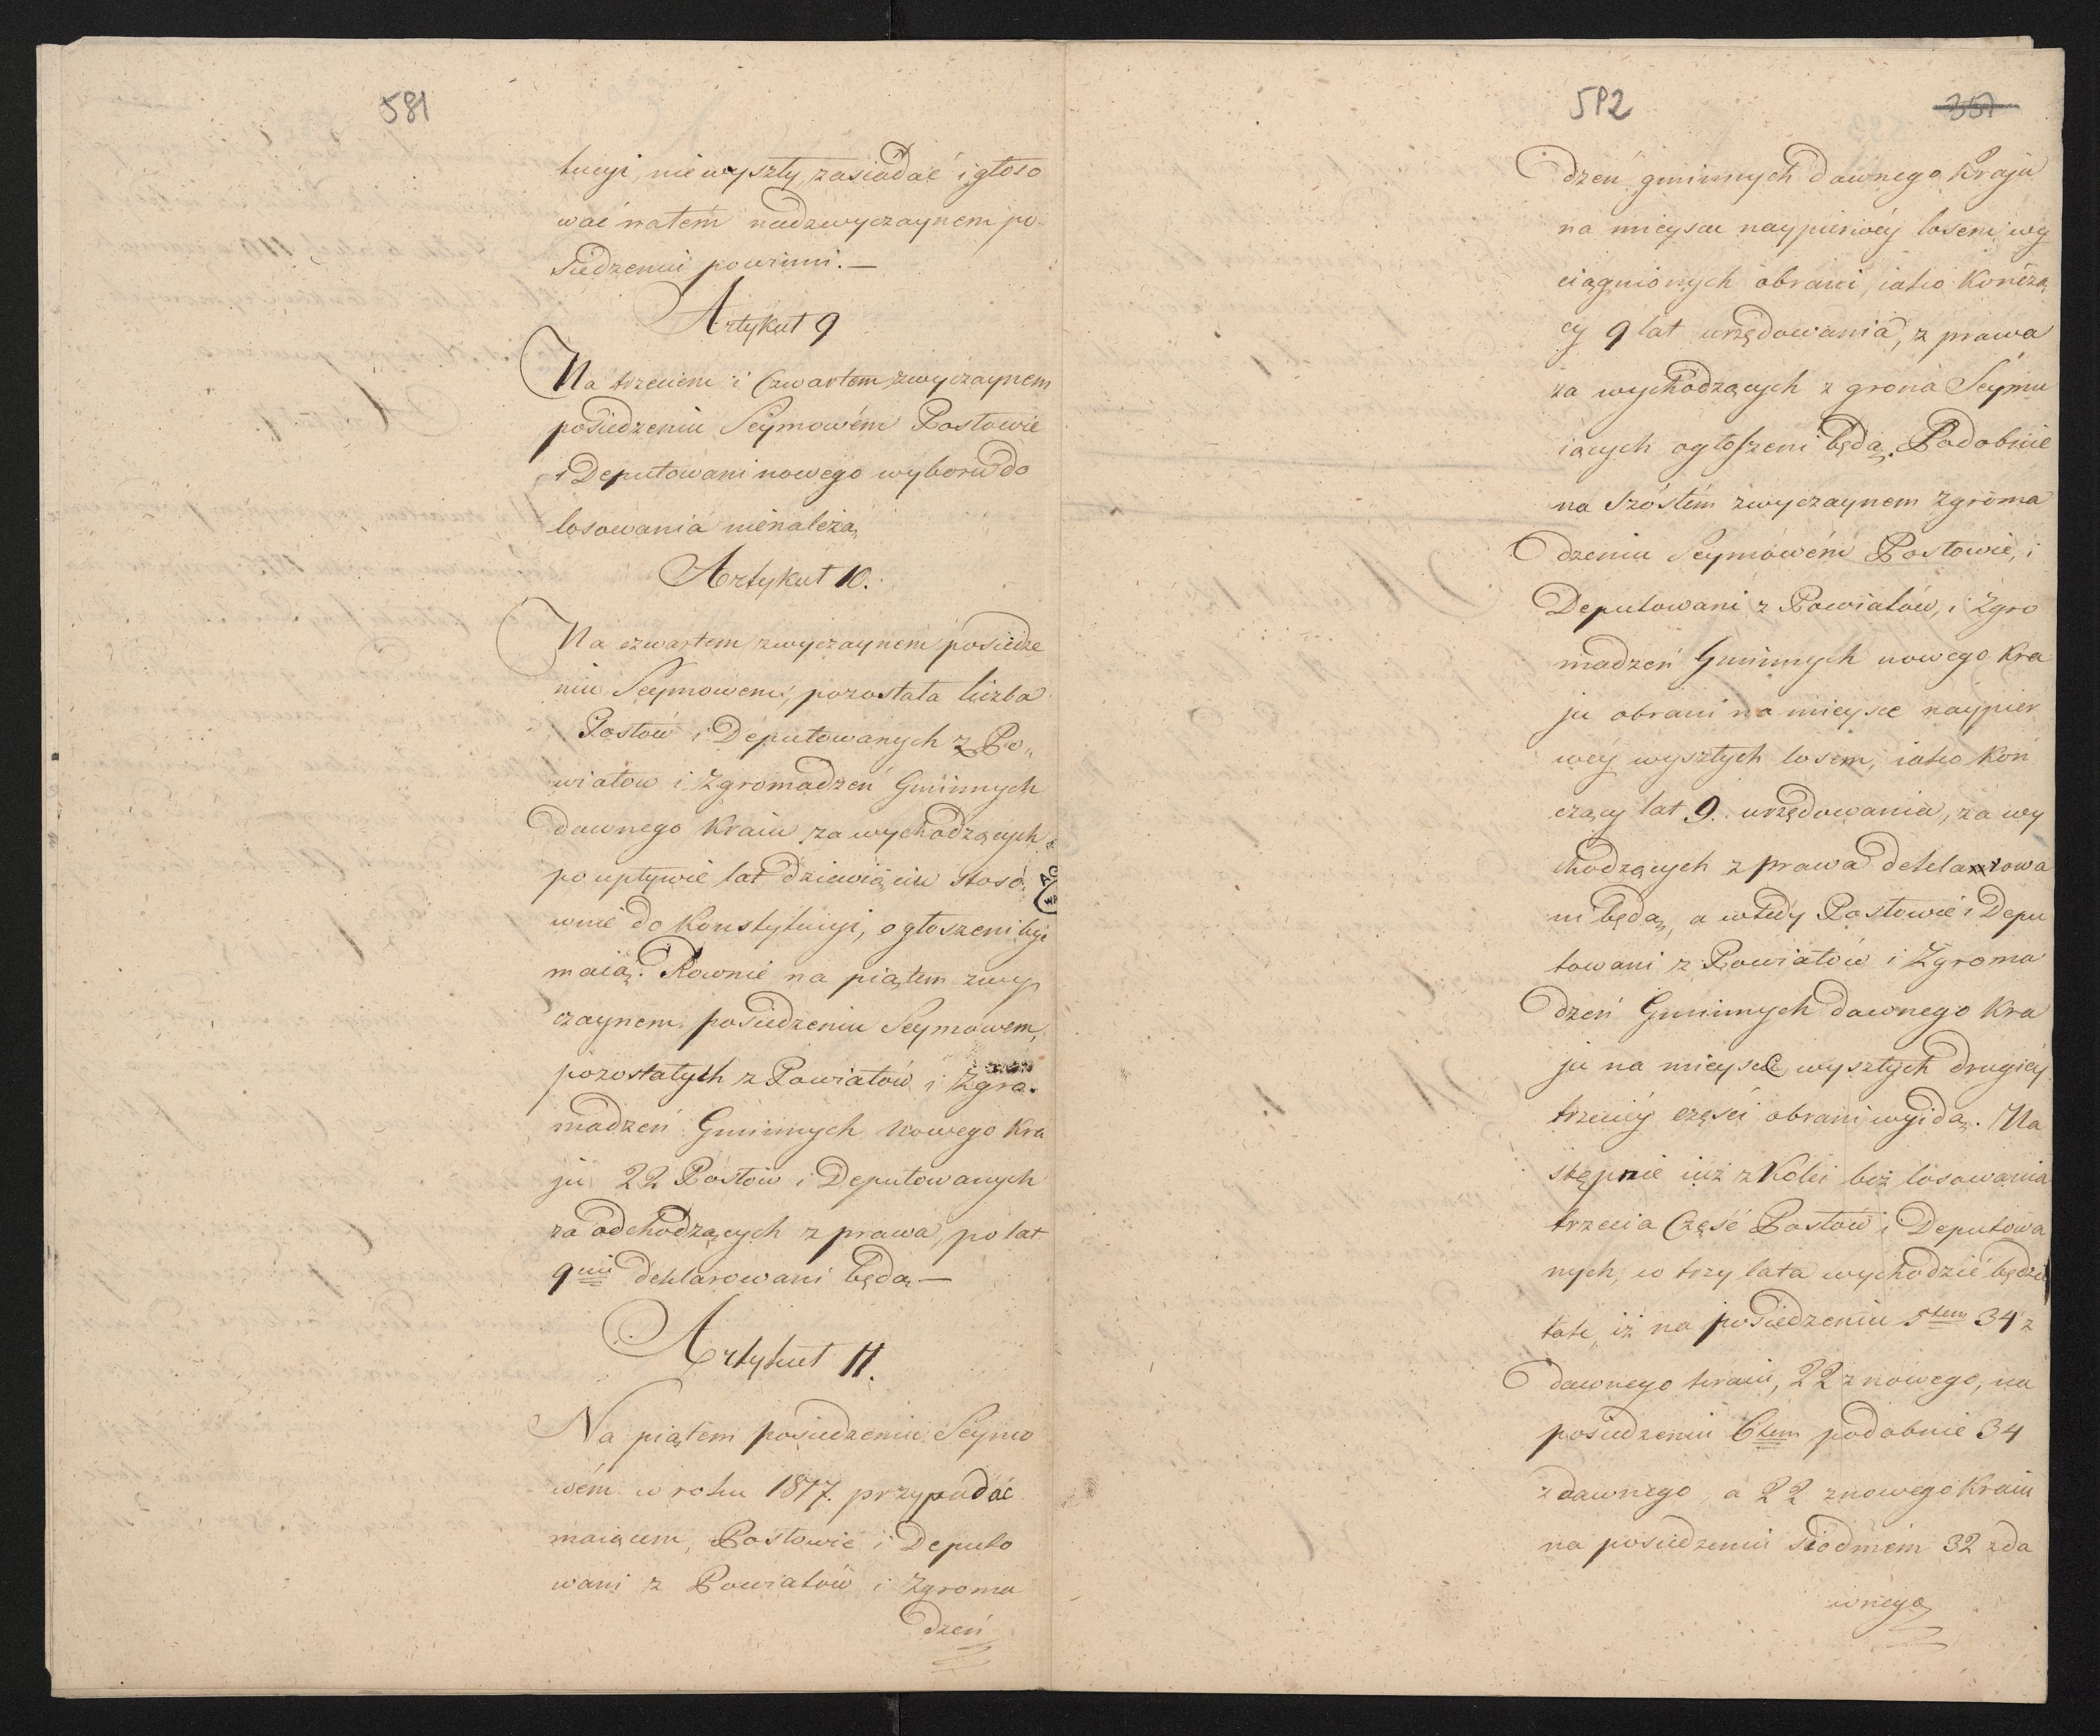 581
tucyi, nie wyszły, zasiadać i głoso
wać natem nadzwyczaynem po-
siedzeniu powinni. —
Artykuł 9
Na trzeciem i Czwartem zwyczaynem
posiedzeniu Seymowém Posłowie
i Deputowani nowego wyboru do
losowania nienależą,
Artykuł 10.
Na czwartem zwyczaynem posiedze
niu Seymowem, pozostała liczba
Posłów i Deputowanych z Po„
wiatow i Zgromadzeń Gminnych
dawnego Kraiu za wychodzących
po upływie lat dziewięciu stoso
wnie do Konstytucyi, ogłoszeni być
maią. Rownie na piątem zwy
czaynem posiedzeniu Seymowem,
pozostałych z Powiatów i Zgro.
madzeń Gminnych nowego Kra
ju 22 Posłów i Deputowanych
za odchodzących z prawa, po lat
9ciu deklarowani będą —
Artykuł 11.
Na piątem posiedzeniu Seymo
wém w roku 1817. przypadać
maiącem, Posłowie i Deputo
wani z Powiatów i Zgroma
dzeń
582
357
dzeń gminnych dawnego Kraju
na mieysce naypierwéy losem wy
ciągnionych obrani, iako Kończą
cy 9 lat urzędowania, z prawa
za wychodzących z grona Seymu
iących ogłoszeni będą. Podobnie
na Szóstém zwyczaynem Zgroma
dzeniu Seymowém Posłowie, i
Deputowani z Powiatów, i Zgro
madzeń Gminnych nowego Kra
ju obrani na mieysce naypier
wéy wyszłych losem, iako Koń
czący lat 9. urzędowania, za wy
chodzących z prawa deklarowa
ni będą, a wtedy Posłowie i Depu
towani z Powiatów i Zgroma
dzeń Gminnych dawnego Kra
ju na mieysce wyszłych drugiéy
trzeciéy części obrani wyidą. Na
stępnie iuż z Kolei bez losowania
trzecia Część Posłów i Deputowa
nych, w trzy lata wychodzić będzie
tak, iż na posiedzeniu 5tem 34 z
dawnego kraiu, 22 z nowego, na
posiedzeniu 6tem podobnie 34
z dawnego, a 22 z nowego Kraiu
na posiedzeniu siodmem 32 z da
wnego